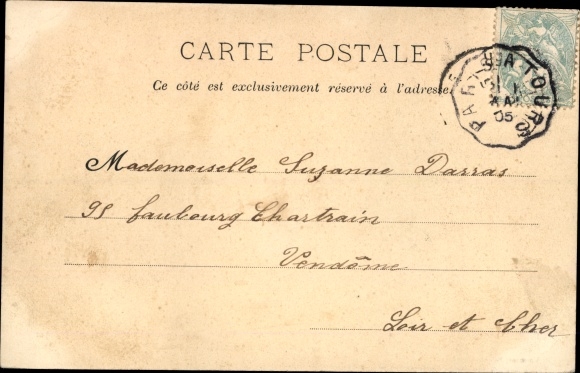 CARTE POSTALE
Ce côté est exclusivement réservé à l'adresse
PARIS
TOURS
05
Mademoiselle Suzanne Darras
95 faubourg Chartrain
Vendôme
Loir et Cher